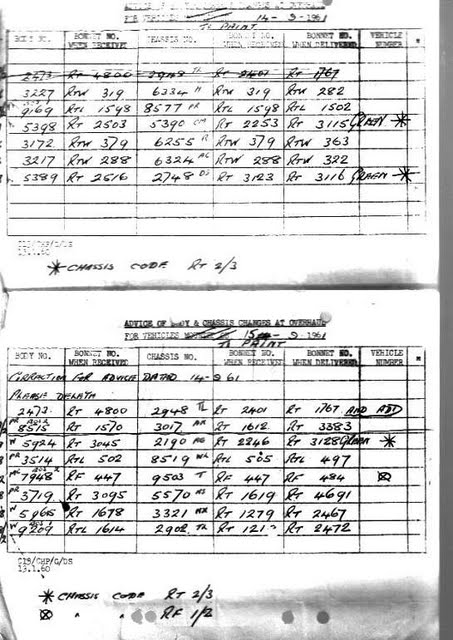 ADVICE OF BODY & CHASSIS CHANGES AT OVERHAUL
FOR VEHICLES 14-9-1961
TO PRINT
BODY NO. BONNET NO. WHEN RECEIVED CHASSIS NO. BONNET NO. WHEN RECEIVED BONNET NO. WHEN DELIVERED VEHICLE NUMBER
2473 RT 4800 2948 TL RT 2401 RT 1767
3227 RTW 319 6334 RTW 319 RTW 282
9169 RTL 1598 8577 PR RTL 1598 RTL 1502
5398 RT 2503 5390 CM RT 2253 RT 3115 GREEN *
3172 RTW 379 6255 R RTW 379 RTW 363
3217 RTW 288 6324 AC RTW 288 RTW 322
5389 RT 2616 2748 DS RT 3123 RT 3116 GREEN *
C19/CHP/Q/DS
13.1.60
* CHASSIS CODE RT 2/3
ADVICE OF BODY & CHASSIS CHANGES AT OVERHAUL
FOR VEHICLES 15-9-1961
TO PRINT
BODY NO. BONNET NO. WHEN RECEIVED CHASSIS NO. BONNET NO. WHEN RECEIVED BONNET NO. WHEN DELIVERED VEHICLE NUMBER
CORRECTION FOR ADVICE DATED 14-9-61
PLEASE
2473 RT 4800 2948 TL RT 2401 RT 1767 AND ADD
PR 8515 RT 1570 3017 AR RT 1612 RT 3383
W 5924 RT 3045 2190 RT 2246 RT 3128 GREEN *
PR 3514 RTL 502 8519 WL RTL 505 RTL 497
7948 RF 447 9503 T RF 447 RF 484 ⊗
PR 3719 RT 3095 5570 RT 1619 RT 4691
W RT 1678 3321 RT 1279 RT 2467
W 9209 RTL 1614 2902 TL RT RT 2472
C19/CHP/Q/DS
13.1.60
* CHASSIS CODE RT 2/3
⊗ " " RF 1/2